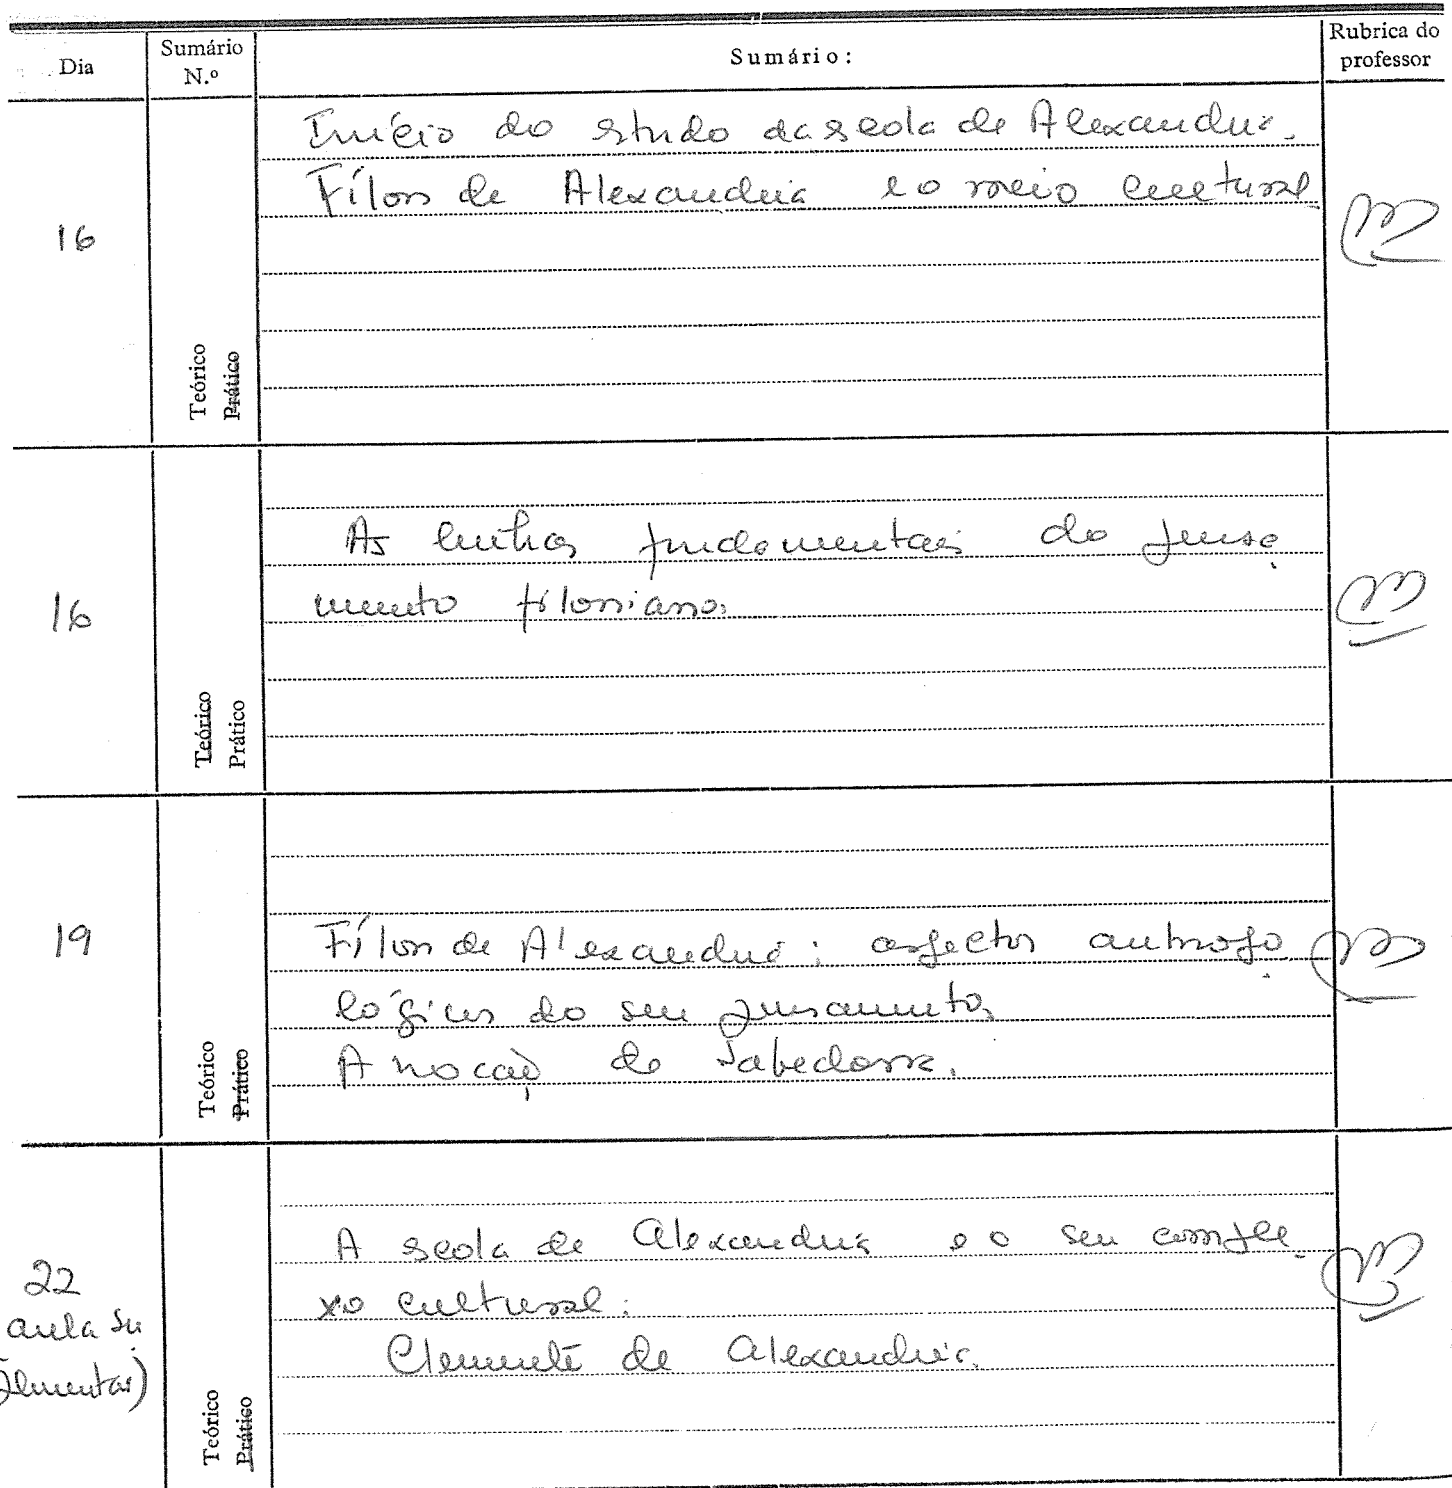 Dia
Sumário
N.º
Sumário:
Rubrica do
professor
16
Início do estudo da escola de Alexandria.
Fílon de Alexandria e o meio cultural
Teórico
Prático
16
As linhas fundamentais do pensa
mento filoniano.
Teórico
Prático
19
Fílon de Alexandria: aspectos antropo
lógicos do seu pensamento.
A noção de Sabedoria.
Teórico
Prático
22
aula su
plementar)
A escola de Alexandria e o seu comple
xo cultural:
Clemente de Alexandria.
Teórico
Prático